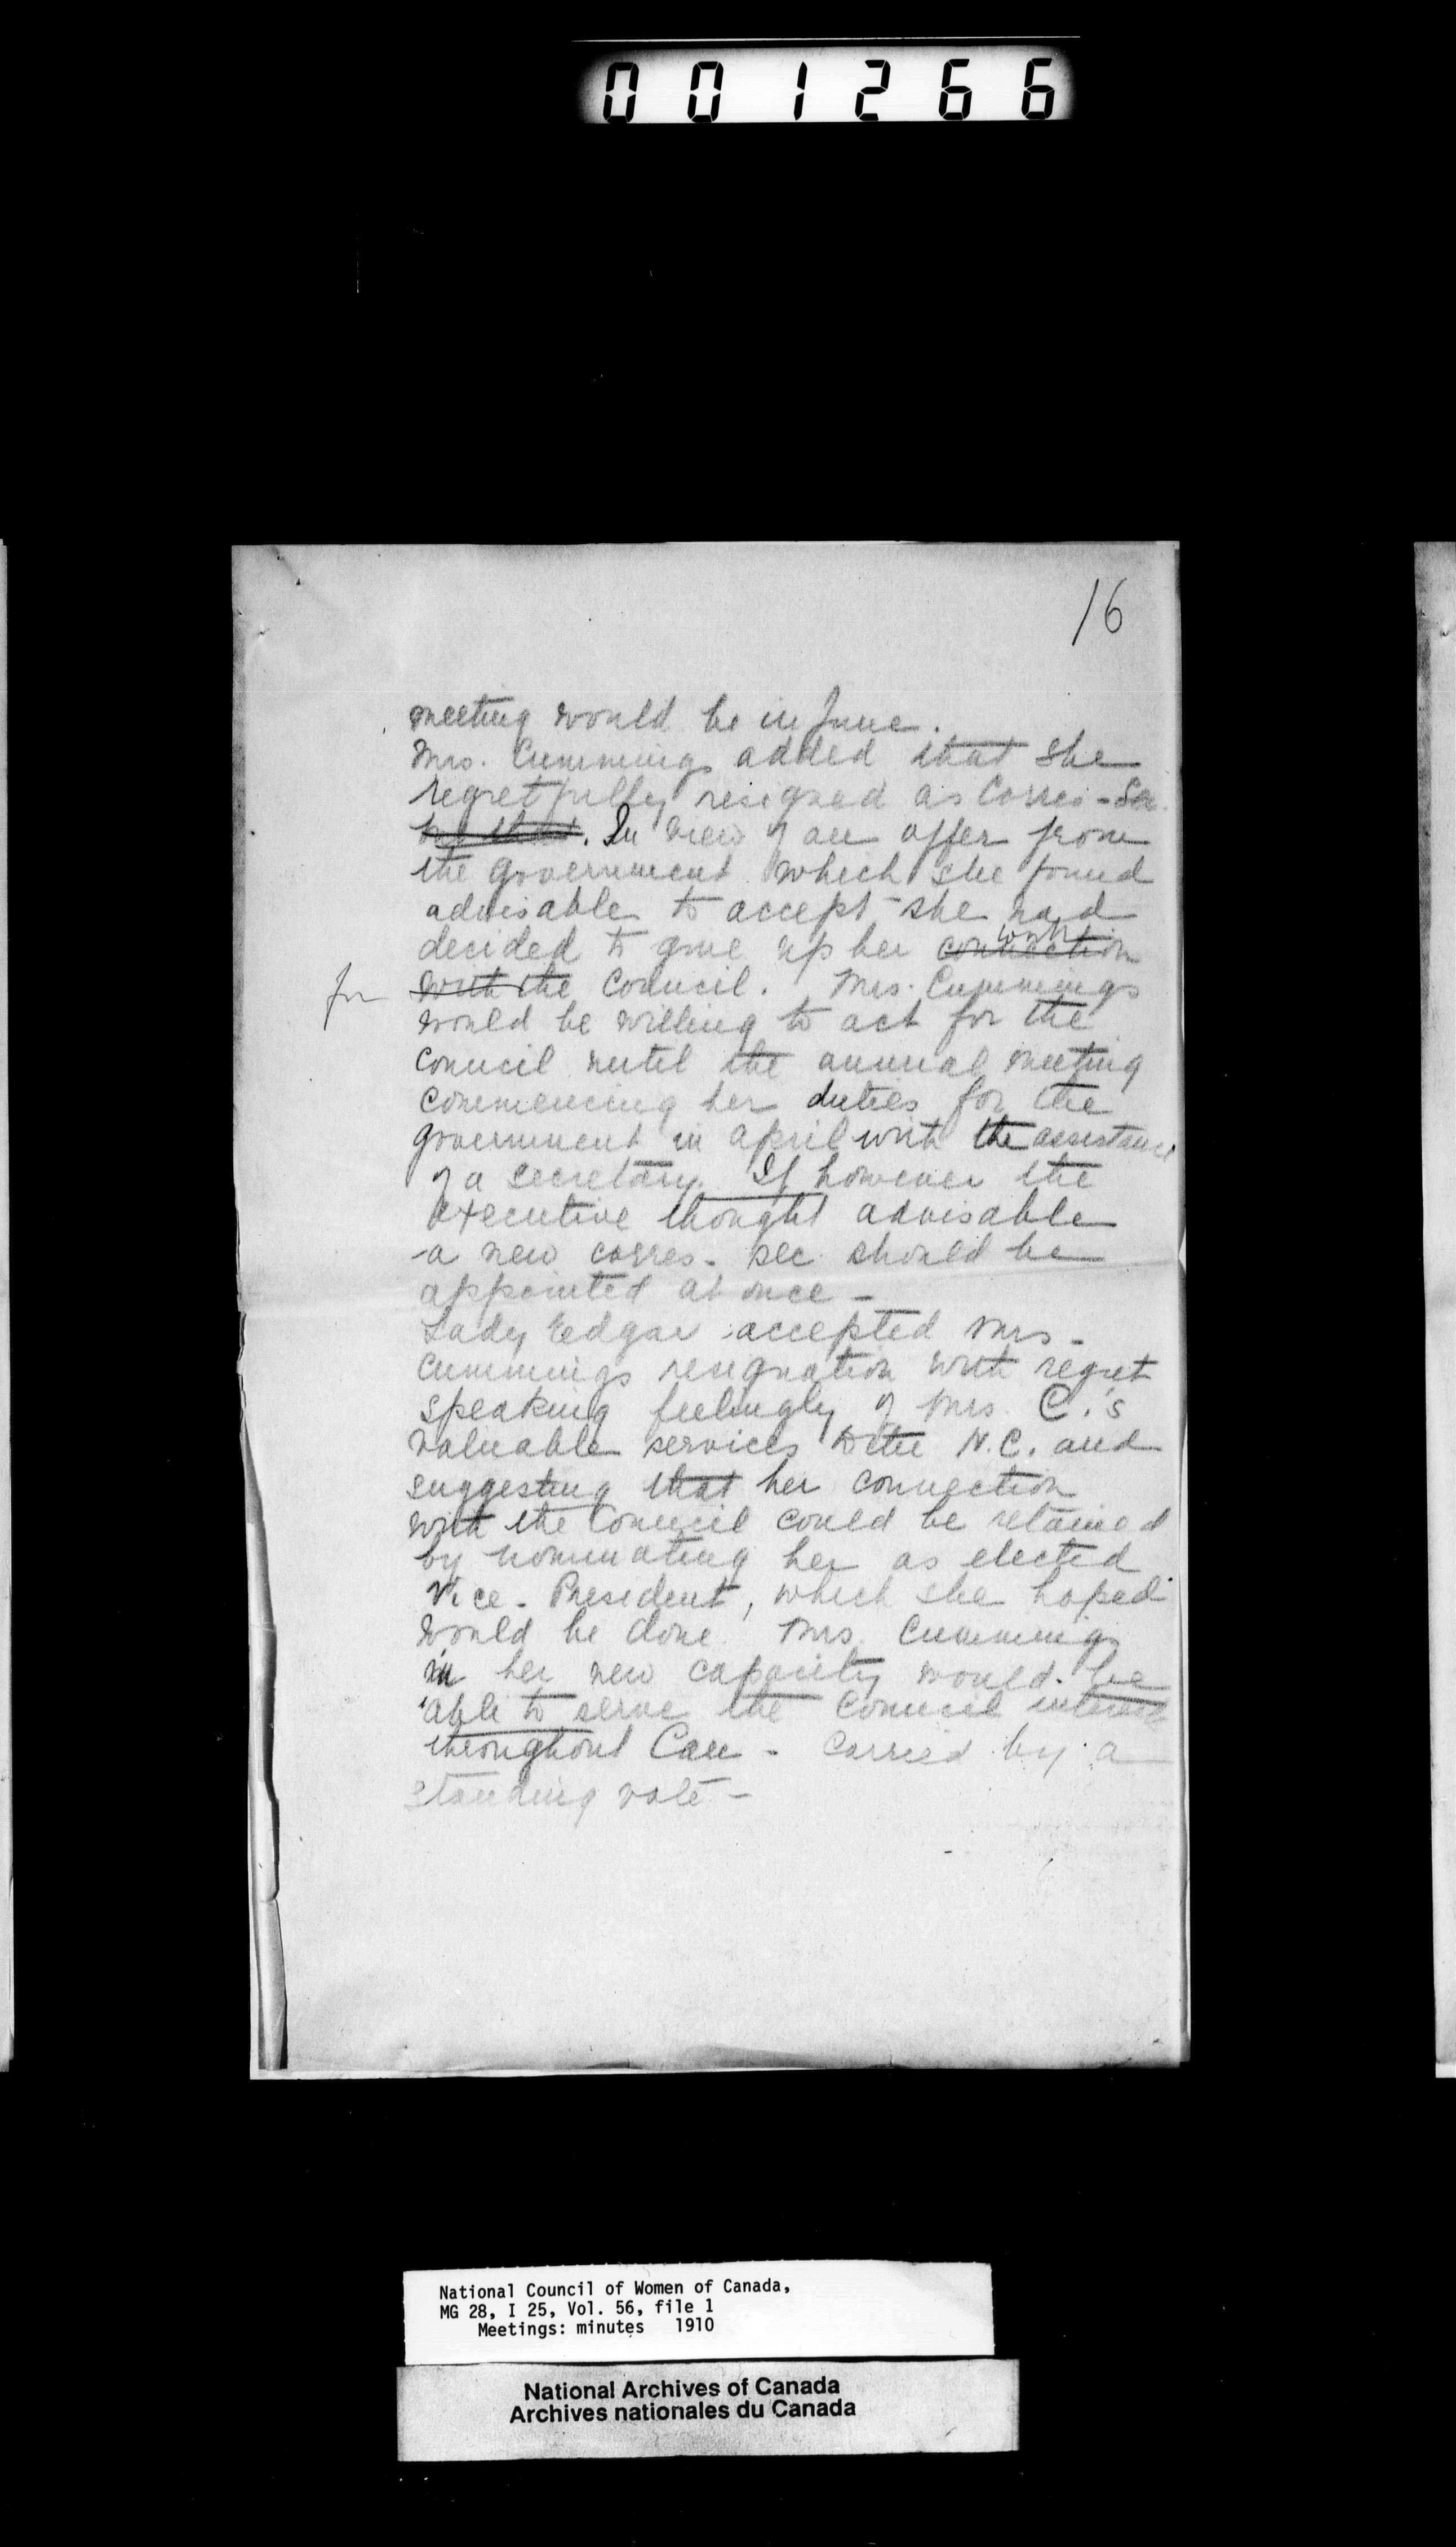 001266
16
meeting would be in June.
Mrs. Cummings added that she
regretfully resigned as Corres-Sec.
but that. In view of an offer from
the government which she found
advisable to accept - she had
decided to give up her connection work
for with the Council. Mrs. Cummings
would be willing to act for the
Council until the annual meeting
commencing her duties for the
government in april with the assistance
of a secretary. If however the
executive thought advisable
a new corres- sec should be
appointed at once -
Lady Edgar accepted Mrs-
Cummings resignation with regret
speaking feelingly of Mrs. C.'s
valuable services to the N.C. and
suggesting that her connection
with the Council could be retained
by nominating her as elected
Vice-President, which she hoped
would be done. Mrs. Cummings
in her new capacity would be
able to serve the Council interests
throughout Can - Carried by a
standing vote -
National Council of Women of Canada,
MG 28, I 25, Vol. 56, file 1
Meetings: minutes 1910
National Archives of Canada
Archives nationales du Canada